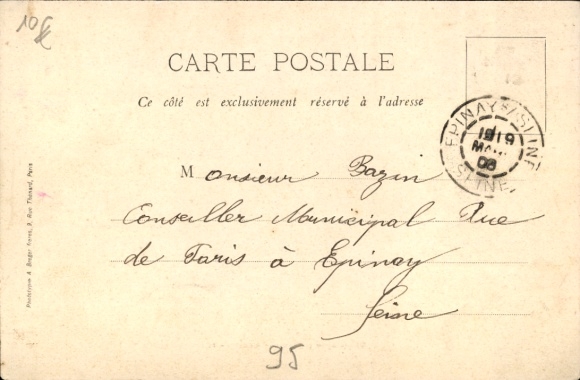 10€
CARTE POSTALE
Ce côté est exclusivement réservé à l'adresse
EPINAY S/ SEINE
19
03
SEINE
Monsieur Bazin
Conseiller Municipal Rue
de Paris à Epinay
Seine
95
Phototypie A. Breger frères, 9, Rue Thénard, Paris